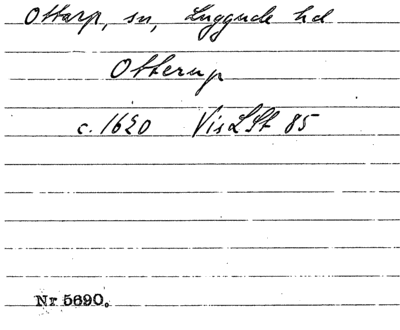 Ottarp, sn, Luggude hd
Otterup
c. 1620 VisLSt 85
Nr 5690.